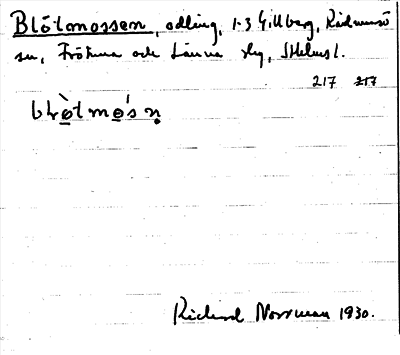 Blötmossen, odling, 1-3 Gillberg, Rådmansö
sn, Frötuna och Länna slg, Sthlms l.
217 217
blò̱tmo̱'sṇ
Richard Norrman 1930.